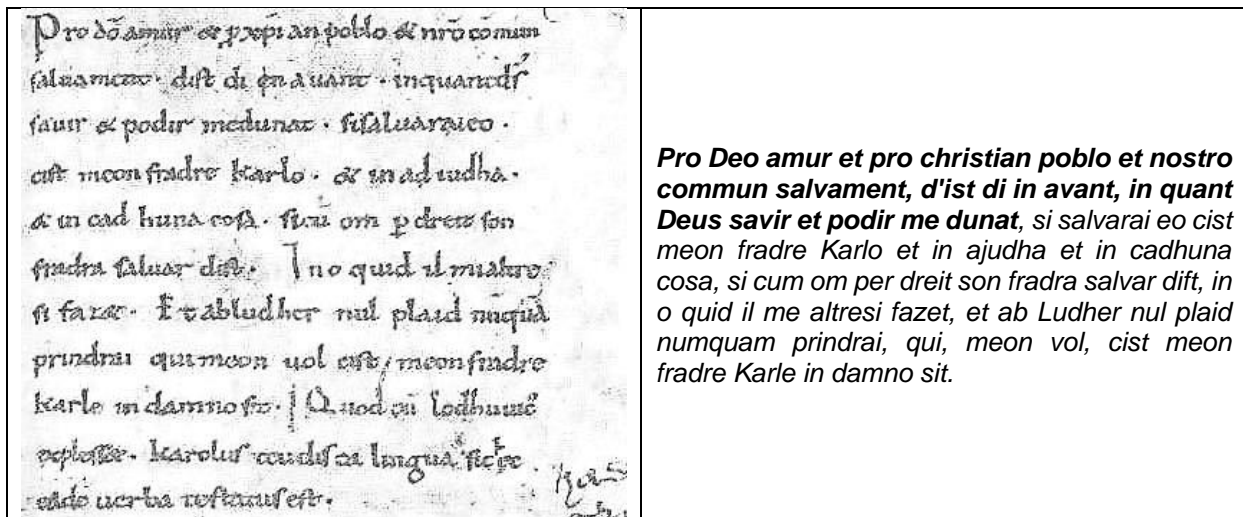 Pro dō amur & ꝑ xp̄ian poblo & nrō cōmun
saluament. dist di en auant. inquantds
sauir & podir medunat. sisaluaraieo.
cist meon fradre Karlo. & in ad iudha.
& in cad huna cosa. sicū om ꝑ dreit son
fradra saluar dist. Ino quid il mialtre
si fazet. Et abludher nul plaid nūquā
prindrai qui meon uol cist meon fradre
Karle in damno sit. Quod cū lodhuuic
explesset. Karolus teudisca lingua
eadē uerba testatus est.
Pro Deo amur et pro christian poblo et nostro
commun salvament, d'ist di in avant, in quant
Deus savir et podir me dunat, si salvarai eo cist
meon fradre Karlo et in ajudha et in cadhuna
cosa, si cum om per dreit son fradra salvar dift, in
o quid il me altresi fazet, et ab Ludher nul plaid
numquam prindrai, qui, meon vol, cist meon
fradre Karle in damno sit.